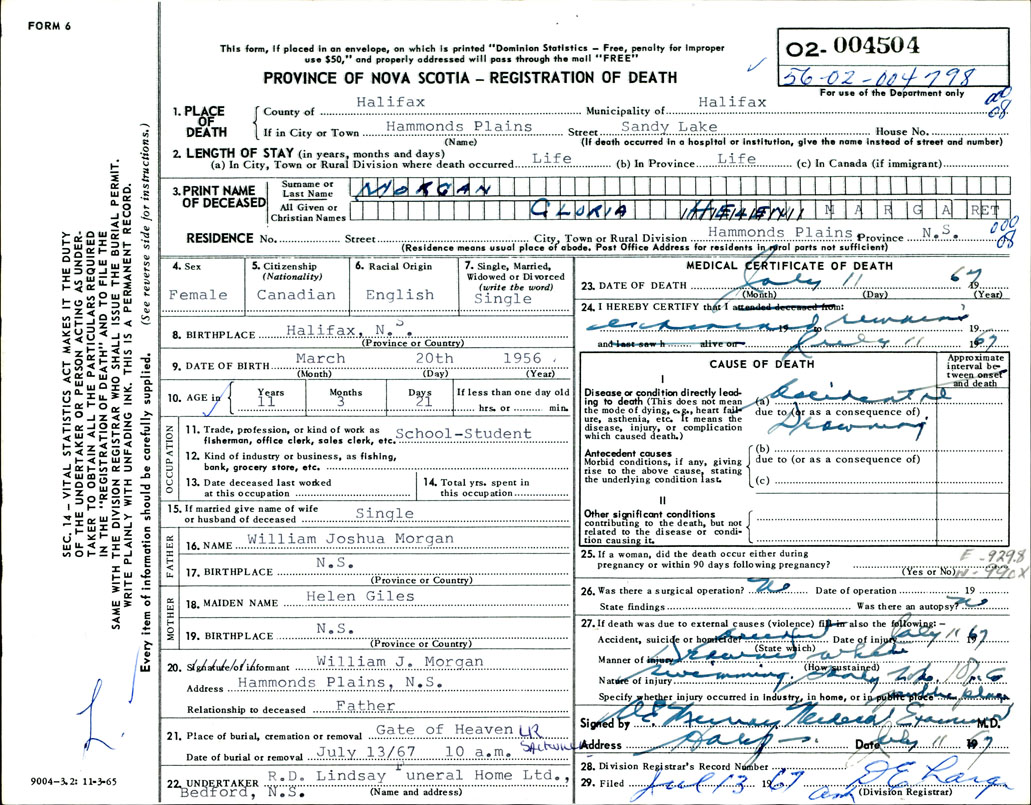 FORM 6
This form, if placed in an envelope, on which is printed "Dominion Statistics – Free, penalty for improper
use $50," and properly addressed will pass through the mail "FREE"
PROVINCE OF NOVA SCOTIA – REGISTRATION OF DEATH
02- 004504
56-02-004798
For use of the Department only
1. PLACE OF DEATH
County of Halifax Municipality of Halifax
08
If in City or Town Hammonds Plains Street Sandy Lake House No.
(Name) (If death occurred in a hospital or institution, give the name instead of street and number)
2. LENGTH OF STAY (in years, months and days)
(a) In City, Town or Rural Division where death occurred Life (b) In Province Life (c) In Canada (if immigrant)
3. PRINT NAME OF DECEASED
Surname or Last Name MORGAN
All Given or Christian Names GLORIA HELEN MARGARET
RESIDENCE No. Street City, Town or Rural Division Hammonds Plains, Province N.S. 000 08
(Residence means usual place of abode. Post Office Address for residents in rural parts not sufficient)
SEC. 14 – VITAL STATISTICS ACT MAKES IT THE DUTY
OF THE UNDERTAKER OR PERSON ACTING AS UNDER-
TAKER TO OBTAIN ALL THE PARTICULARS REQUIRED
IN THE "REGISTRATION OF DEATH" AND TO FILE THE
SAME WITH THE DIVISION REGISTRAR WHO SHALL ISSUE THE BURIAL PERMIT.
WRITE PLAINLY WITH UNFADING INK. THIS IS A PERMANENT RECORD.
Every item of information should be carefully supplied. (See reverse side for instructions.)
4. Sex Female
5. Citizenship (Nationality) Canadian
6. Racial Origin English
7. Single, Married, Widowed or Divorced (write the word) Single
8. BIRTHPLACE Halifax, N.S.
(Province or Country)
9. DATE OF BIRTH March 20th 1956
(Month) (Day) (Year)
10. AGE in Years 11 Months 3 Days 21 If less than one day old hrs. or min.
OCCUPATION
11. Trade, profession, or kind of work as
fisherman, office clerk, sales clerk, etc. School-Student
12. Kind of industry or business, as fishing,
bank, grocery store, etc.
13. Date deceased last worked
at this occupation
14. Total yrs. spent in
this occupation
15. If married give name of wife
or husband of deceased Single
FATHER
16. NAME William Joshua Morgan
17. BIRTHPLACE N.S.
(Province or Country)
MOTHER
18. MAIDEN NAME Helen Giles
19. BIRTHPLACE N.S.
(Province or Country)
20. Signature/of/informant William J. Morgan
Address Hammonds Plains, N.S.
Relationship to deceased Father
21. Place of burial, cremation or removal Gate of Heaven LR
Date of burial or removal July 13/67 10 a.m.
22. UNDERTAKER R.D. Lindsay Funeral Home Ltd.,
Bedford, N.S. (Name and address)
9004-3.2: 11-3-65
MEDICAL CERTIFICATE OF DEATH
23. DATE OF DEATH July 11 1967
(Month) (Day) (Year)
24. I HEREBY CERTIFY that I attended deceased from:
examined 19 to remains 19
and last saw h alive on July 11 1967
CAUSE OF DEATH
Approximate interval between onset and death
I
Disease or condition directly lead-
ing to death (This does not mean
the mode of dying, e.g., heart fail-
ure, asthenia, etc. It means the
disease, injury, or complication
which caused death.)
(a) Accidental
due to (or as a consequence of)
Drowning
Antecedent causes
Morbid conditions, if any, giving
rise to the above cause, stating
the underlying condition last.
(b)
due to (or as a consequence of)
(c)
II
Other significant conditions
contributing to the death, but not
related to the disease or condi-
tion causing it.
25. If a woman, did the death occur either during
pregnancy or within 90 days following pregnancy?
(Yes or No)
E-929.8
N-990X
26. Was there a surgical operation? No Date of operation 19
State findings Was there an autopsy? No
27. If death was due to external causes (violence) fill in also the following: –
Accident, suicide or homicide accident Date of injury July 11 1967
(State which)
Manner of injury Drowned while
(How sustained)
Nature of injury swimming.
Specify whether injury occurred in industry, in home, or in public place public place
Signed by Medical Examiner M.D.
Address Date July 11 1967
28. Division Registrar's Record Number
29. Filed Jul 13 1967
(Division Registrar)